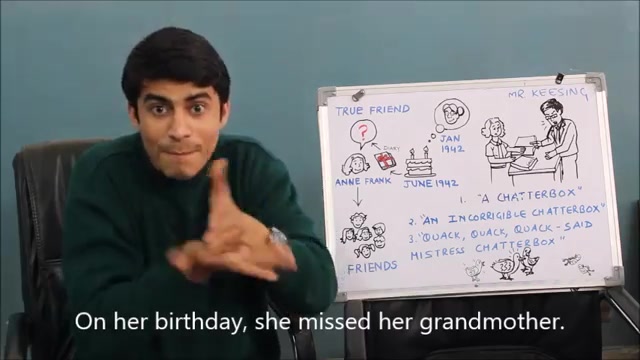 TRUE FRIEND
MR KEESING
?
DIARY
JAN
1942
ANNE FRANK
JUNE 1942
FRIENDS
1. "A CHATTERBOX"
2. "AN INCORRIGIBLE CHATTERBOX"
3. "QUACK, QUACK, QUACK - SAID
MISTRESS CHATTERBOX"
On her birthday, she missed her grandmother.